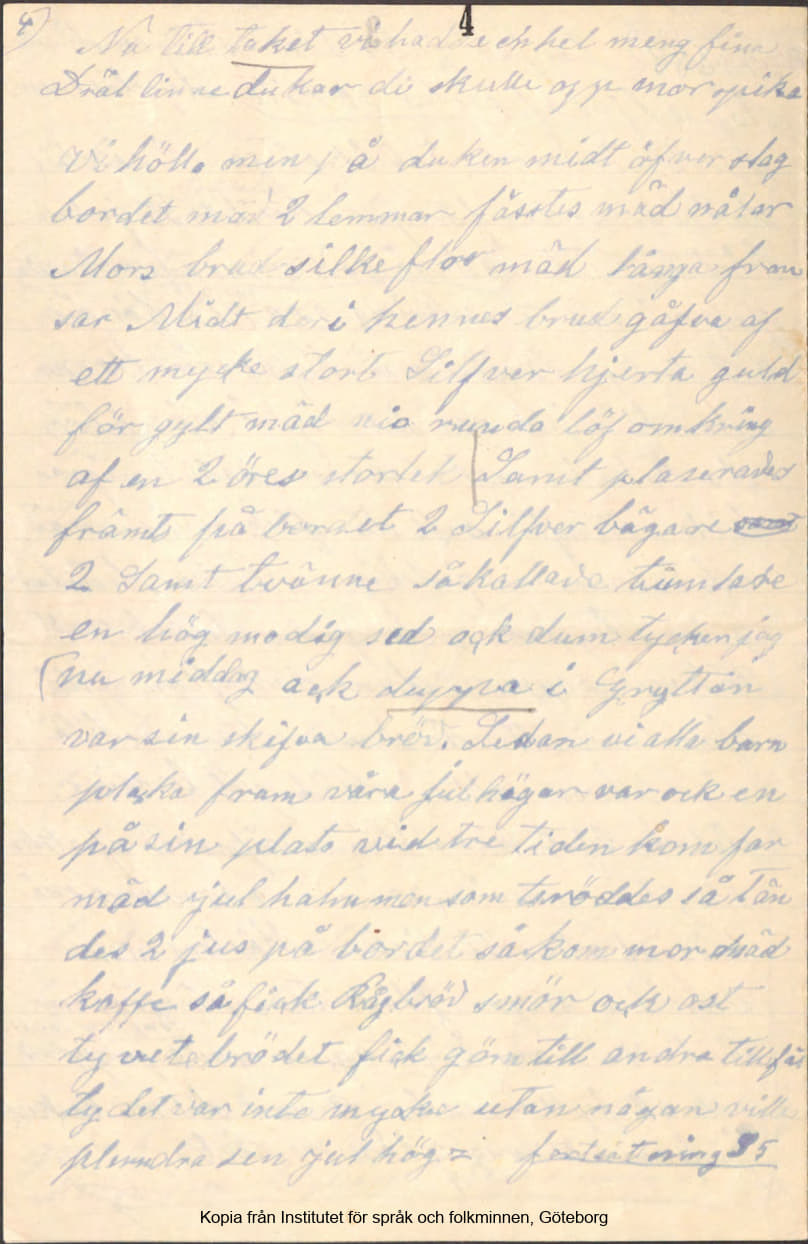 4) 4
Nu till taket vi hade enkel meng fina
Dräl linnedukar di skulle opp mor spika
Vi hölle men på duken midt öfver slag
bordet mäd 2 lemmar fästes mäd nålar
Mors brud silkeflor mäd långa fran
sar Midt deri hennes brud gåfva af
ett mycke stort Silfver hjerta guld
för gylt mäd nio runda löf omkring
af en 2 öres storlek Samt plaserades
främts på bordet 2 Silfver bägare
2 Samt tvänne såkallade tumlare
en hög modig sed ock dum tycken jag
(nu middag ack duppa i Gryttan
var sin skifva bröd. Sedan vi alla barn
plocka fram våra jul högar var ock en
på sin plats vid tre tiden kom far
mäd jul halmmen som ströddes så Tän
des 2 jus på bordet så kom mor mäd
kaffe så fick Rågbröd smör ock ost
ty vetebrödet fick göm till andra tillfäl
ty det var inte mycke utan någan ville
plundra sen jul hög = fortsätering S5
Kopia från Institutet för språk och folkminnen, Göteborg